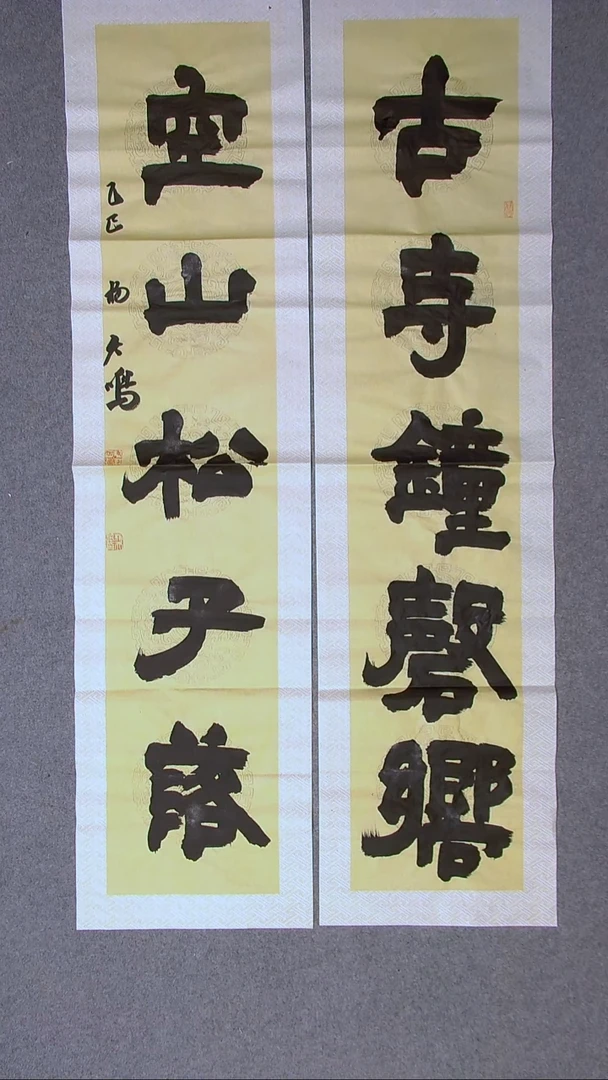 古寺鐘磬響
空山松子落
乙巳 楊大鳴